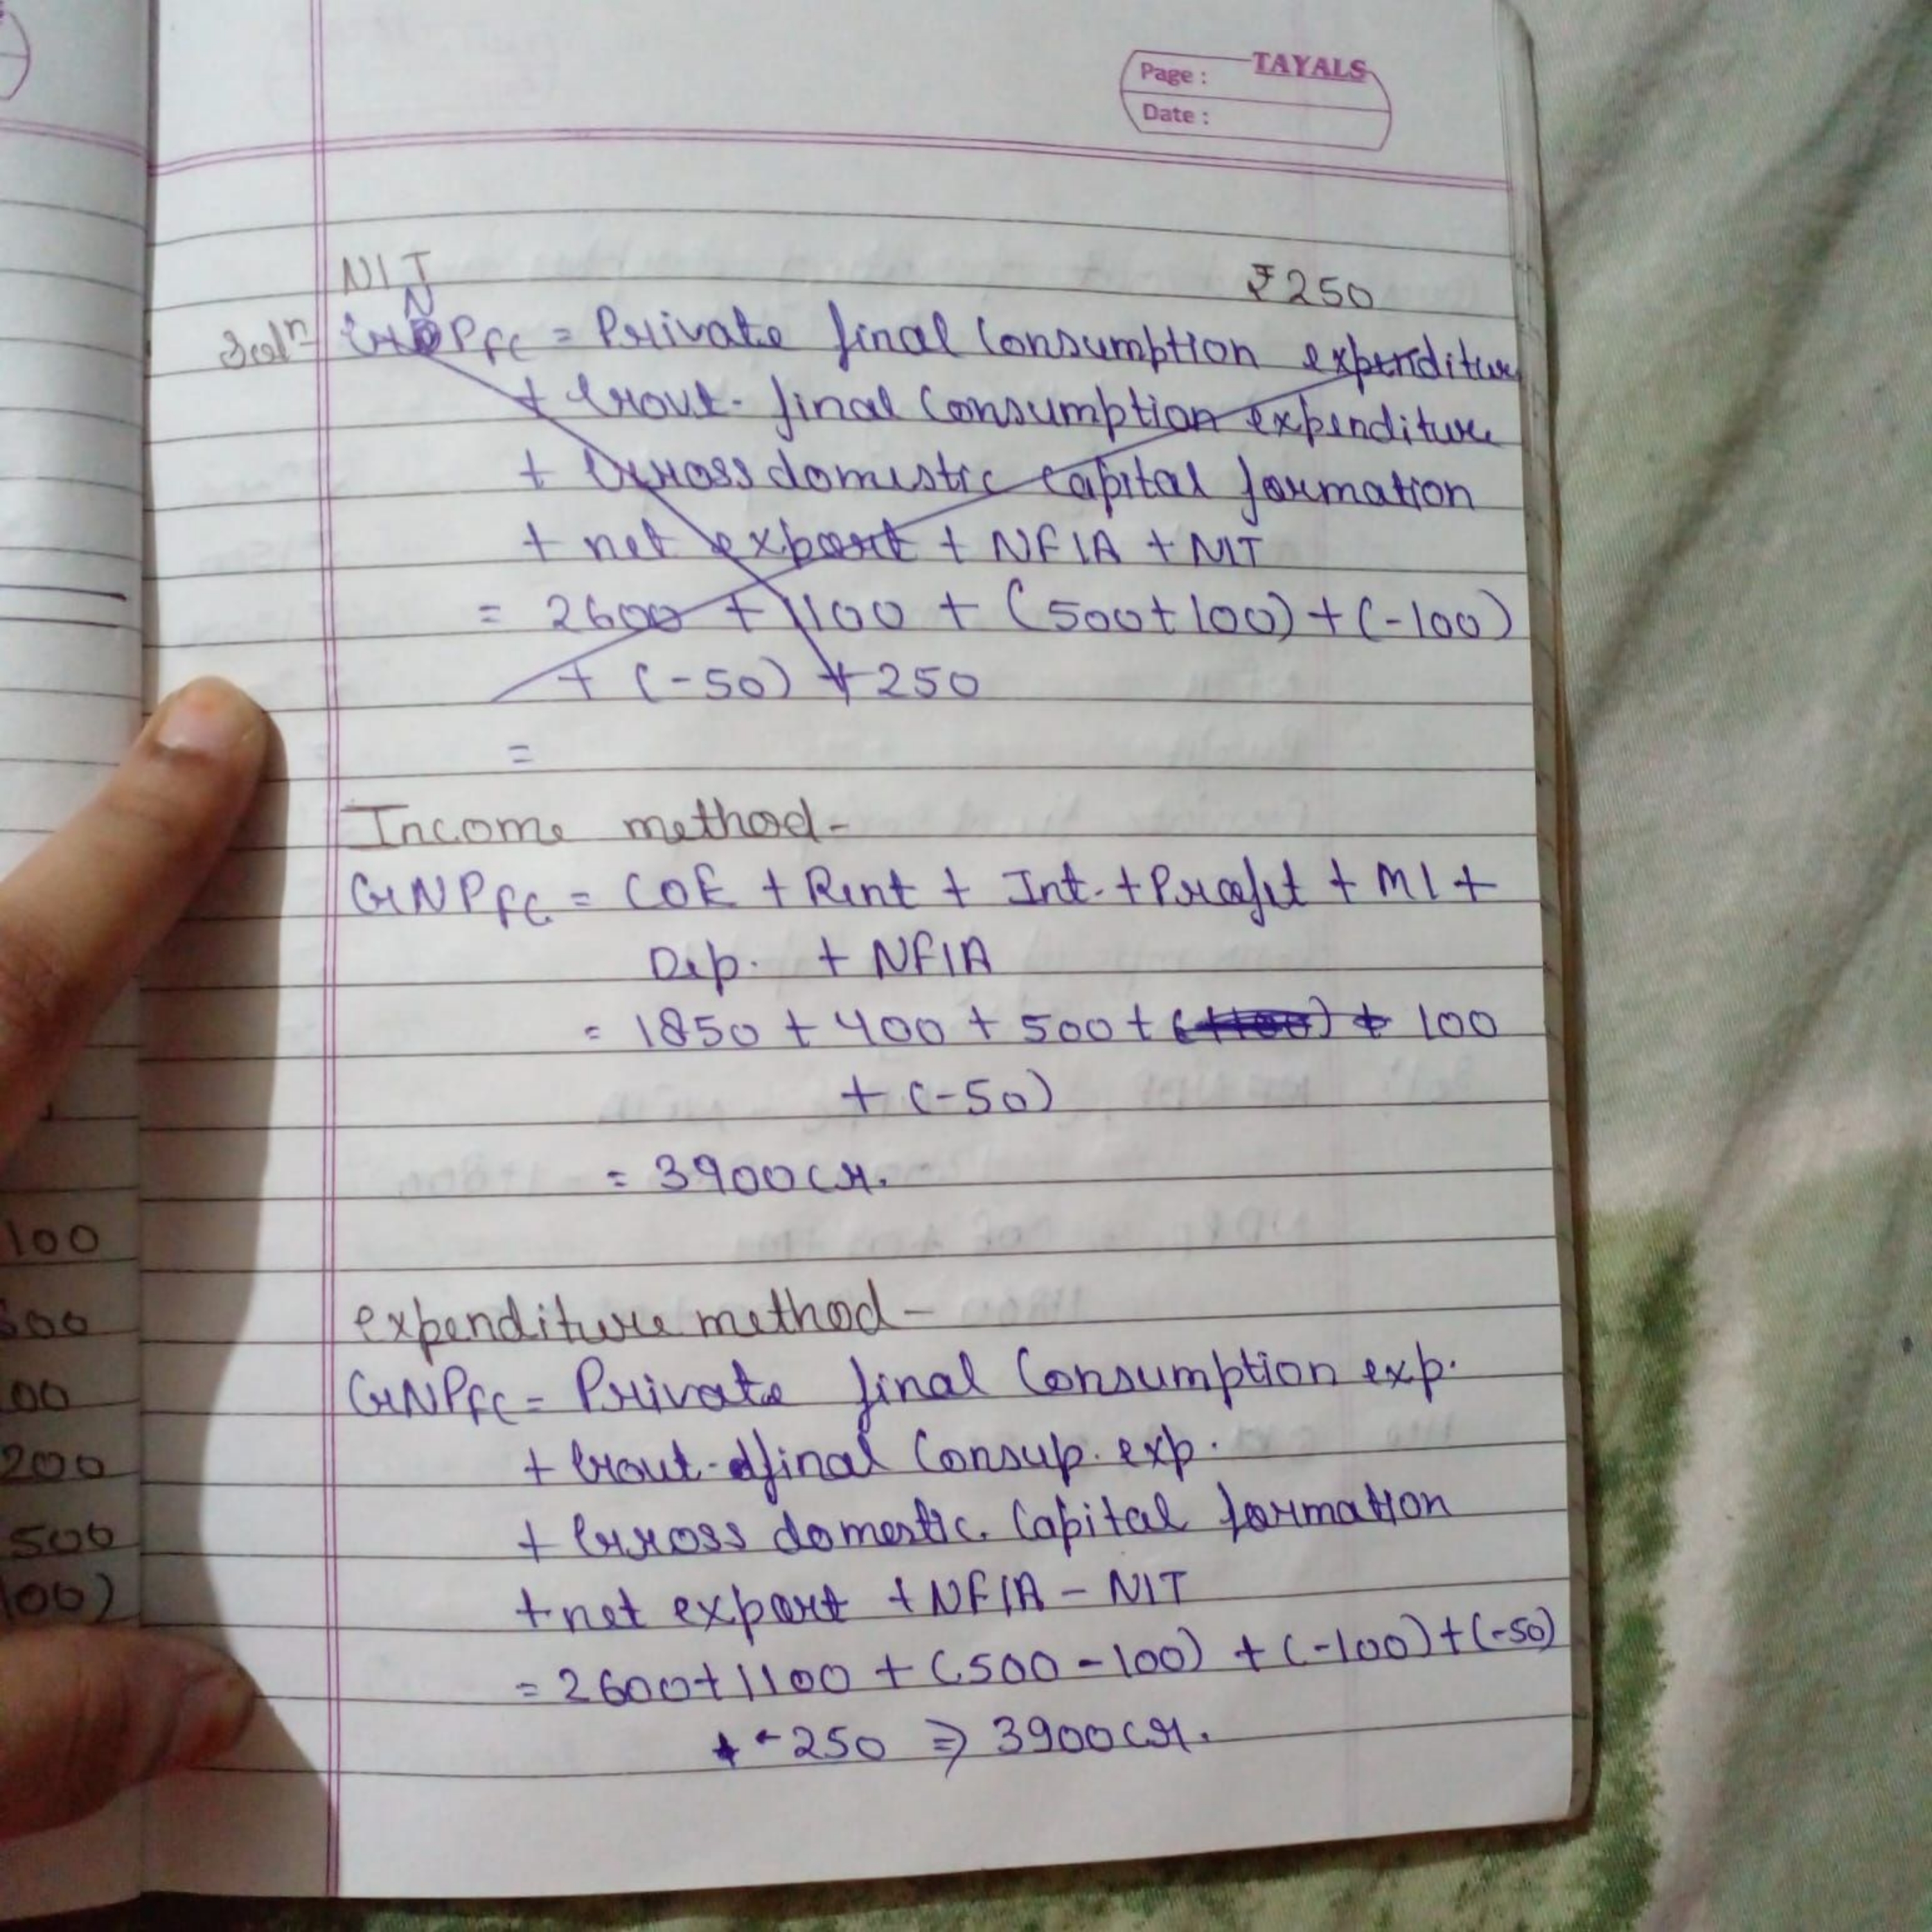 TAYALS
Page :
Date :
NIT ₹250
Solⁿ GNPFC = Private final Consumption expenditure
+ Govt. final Consumption expenditure
+ Gross domestic capital formation
+ net export + NFIA + NIT
= 2600 + 1100 + (500+100) + (-100)
+ (-50) + 250
=
Income method-
GNPFC = COE + Rent + Int. + Profit + MI +
Dep. + NFIA
= 1850 + 400 + 500 + 100
+ (-50)
= 3900 cr.
expenditure method-
GNPFC = Private final Consumption exp.
+ Govt. final Consup. exp.
+ Gross domestic Capital formation
+ net export + NFIA - NIT
= 2600 + 1100 + (500 - 100) + (-100) + (-50)
-250 ⇒ 3900 cr.
100
00
200
500
00)